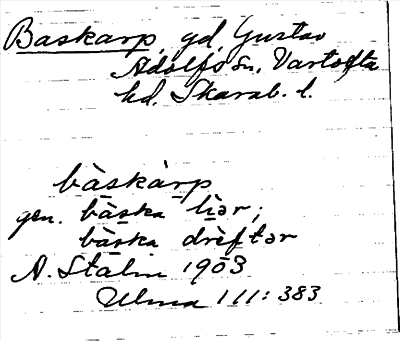 Baskarp, gd, Gustav
Adolfs sn, Vartofta
hd, Skarab. l.
bàskàrp
gen. bàska
bàska drèftər
A. Stalin 1903
Ulma 111: 383